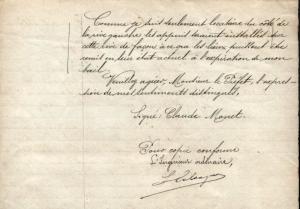 Comme je suis seulement locataire du côté de
la rive gauche les appuis seraient installés sur
cette rive de façon à ce que les lieux puissent être
remis en leur état actuel à l'expiration de mon
bail.
Veuillez agréer, Monsieur le Préfet, l'expres-
sion de mes sentiments distingués.
Signé: Claude Monet.
Pour copie conforme
L'Ingénieur ordinaire,